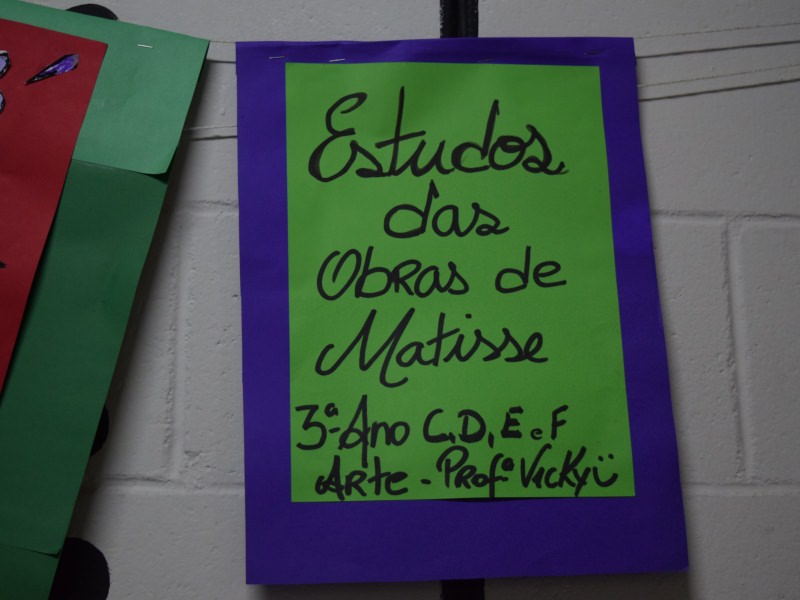 Estudos
das
Obras de
Matisse
3ª Ano C, D, E e F
Arte - Profª Vicky ü